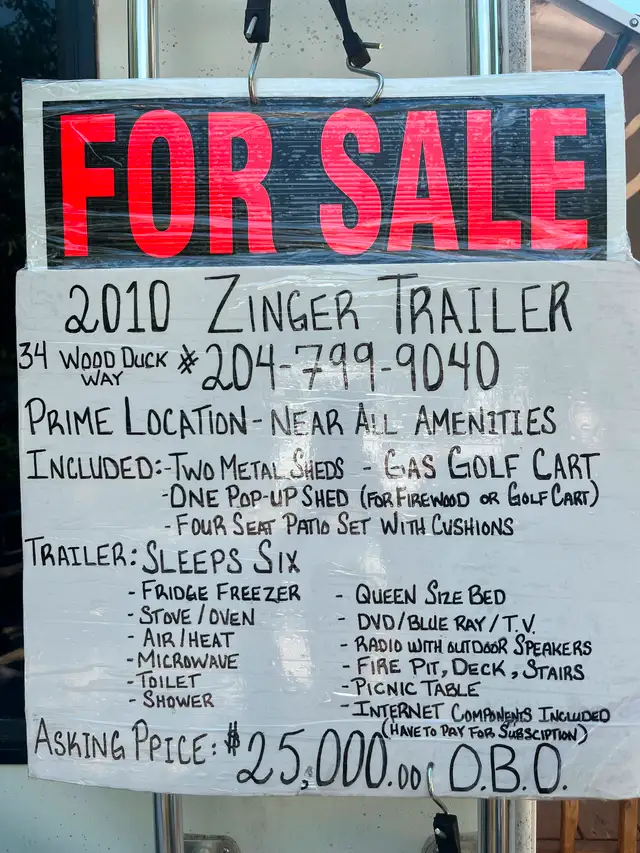 FOR SALE
2010 ZINGER TRAILER
34 WOOD DUCK WAY # 204-799-9040
PRIME LOCATION - NEAR ALL AMENITIES
INCLUDED: - TWO METAL SHEDS - GAS GOLF CART
- ONE POP-UP SHED (FOR FIREWOOD OR GOLF CART)
- FOUR SEAT PATIO SET WITH CUSHIONS
TRAILER: SLEEPS SIX
- FRIDGE FREEZER
- STOVE/OVEN
- AIR/HEAT
- MICROWAVE
- TOILET
- SHOWER
- QUEEN SIZE BED
- DVD/BLUE RAY/T.V.
- RADIO WITH OUTDOOR SPEAKERS
- FIRE PIT, DECK, STAIRS
- PICNIC TABLE
- INTERNET COMPONENTS INCLUDED
(HAVE TO PAY FOR SUBSCIPTION)
ASKING PPICE: $25,000.00 O.B.O.